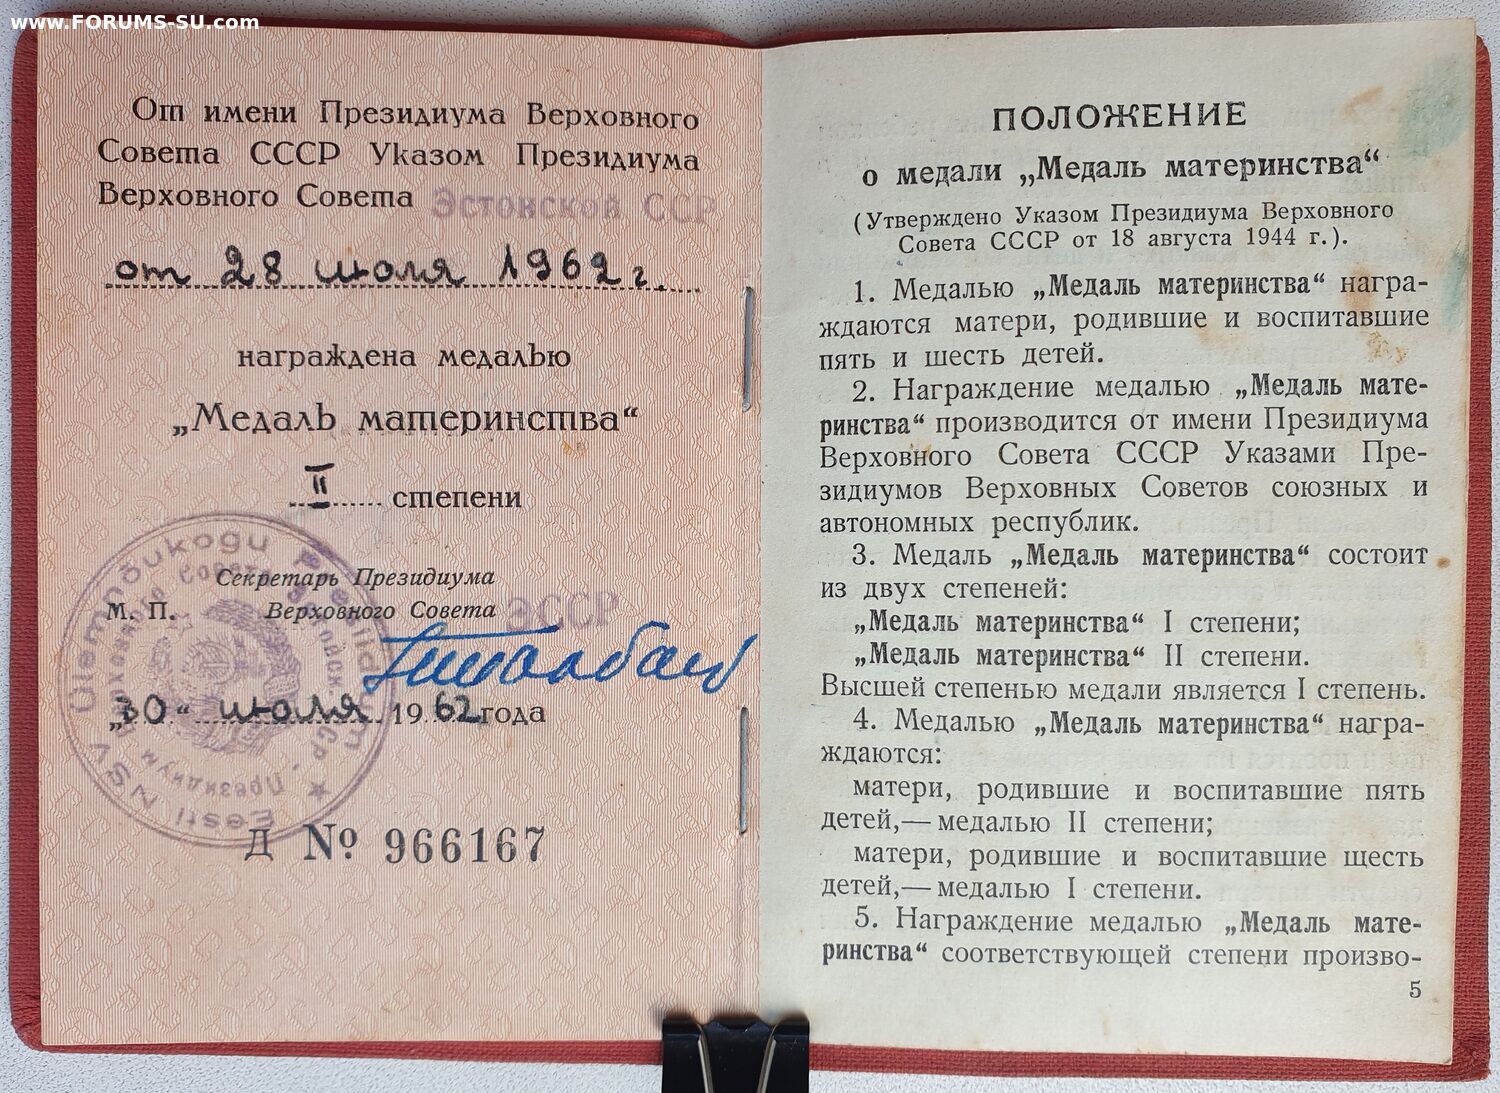 www.FORUMS-SU.com
От имени Президиума Верховного
Совета СССР Указом Президиума
Верховного Совета Эстонской ССР
от 28 июля 1962 г.
награждена медалью
„Медаль материнства“
II степени
Секретарь Президиума
М. П. Верховного Совета ЭССР
„30“ июля 1962 года
Д № 966167
Eesti NSV Ülemnõukogu Presiidium
Президиум Верховного Совета Эстонск. ССР
ПОЛОЖЕНИЕ
о медали „Медаль материнства“
(Утверждено Указом Президиума Верховного
Совета СССР от 18 августа 1944 г.).
1. Медалью „Медаль материнства“ награ-
ждаются матери, родившие и воспитавшие
пять и шесть детей.
2. Награждение медалью „Медаль мате-
ринства“ производится от имени Президиума
Верховного Совета СССР Указами Пре-
зидиумов Верховных Советов союзных и
автономных республик.
3. Медаль „Медаль материнства“ состоит
из двух степеней:
„Медаль материнства“ I степени;
„Медаль материнства“ II степени.
Высшей степенью медали является I степень.
4. Медалью „Медаль материнства“ награ-
ждаются:
матери, родившие и воспитавшие пять
детей,— медалью II степени;
матери, родившие и воспитавшие шесть
детей,— медалью I степени.
5. Награждение медалью „Медаль мате-
ринства“ соответствующей степени произво-
5